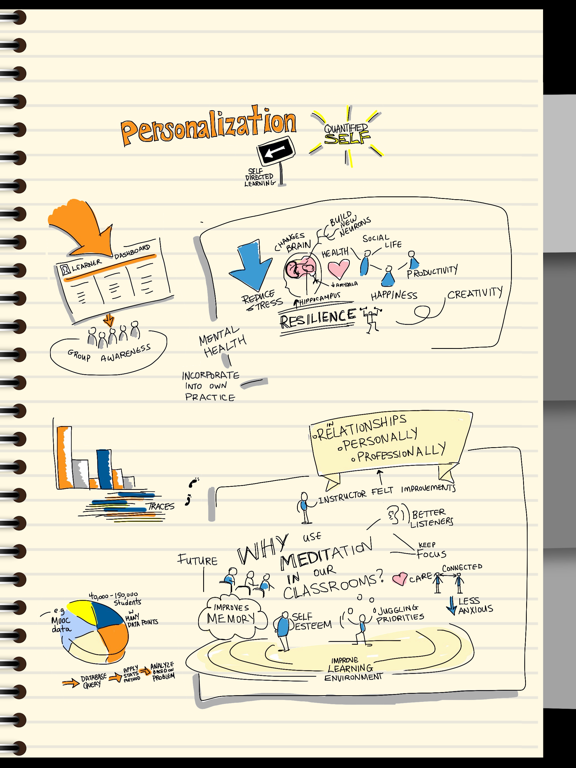 Personalization
QUANTIFIED
SELF
SELF
DIRECTED
LEARNING
LEARNER DASHBOARD
GROUP AWARENESS
CHANGES
BRAIN
BUILD
NEW
NEURONS
HEALTH
SOCIAL
LIFE
PRODUCTIVITY
HAPPINESS
CREATIVITY
REDUCE
STRESS
↑HIPPOCAMPUS
RESILIENCE
MENTAL
HEALTH
INCORPORATE
INTO OWN
PRACTICE
TRACES
IN
RELATIONSHIPS
PERSONALLY
PROFESSIONALLY
INSTRUCTOR FELT IMPROVEMENTS
BETTER
LISTENERS
KEEP
FOCUS
WHY USE
MEDITATION
IN OUR
CLASSROOMS?
FUTURE
CARE
CONNECTED
LESS
ANXIOUS
IMPROVES
MEMORY
SELF
ESTEEM
JUGGLING
PRIORITIES
IMPROVE
LEARNING
ENVIRONMENT
e.g
MOOC
data
40,000-150,000
Students
w/ MANY
DATA POINTS
DATABASE
QUERY
APPLY
STATS
METHOD
ANALYZE
BASED ON
PROBLEM